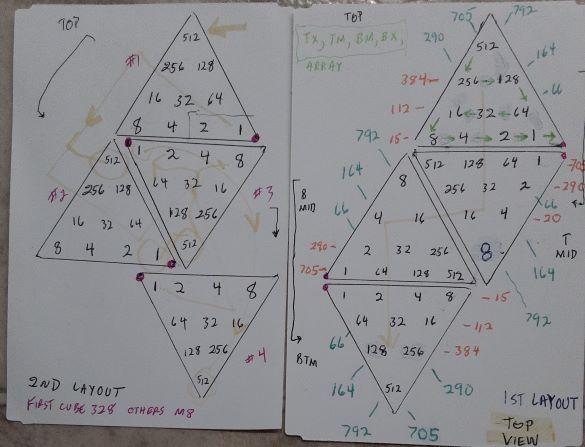 TOP
512
#1
256 128
16 32 64
8 4 2 1
512
1 2 4 8
#2
256 128
64 32 16
#3
16 32 64
128 256
8 4 2 1
512
1 2 4 8
64 32 16
128 256
#4
512
2ND LAYOUT
FIRST CUBE 328 OTHERS M8
TOP
705
792
TX, TM, BM, BX,
ARRAY
290
512
164
384
256 128
66
112
16 32 64
15
8 4 2 1
792
512 128 64 1
705
164
8
256 32 2
290
8
MID
66
4 16
16 4
66
20
290
2 32 256
8
T
MID
705
1 64 128 512
164
1 2 4 8
15
792
64 32 16
112
BTM
66
128 256
384
164
512
290
792
705
1ST LAYOUT
TOP
VIEW